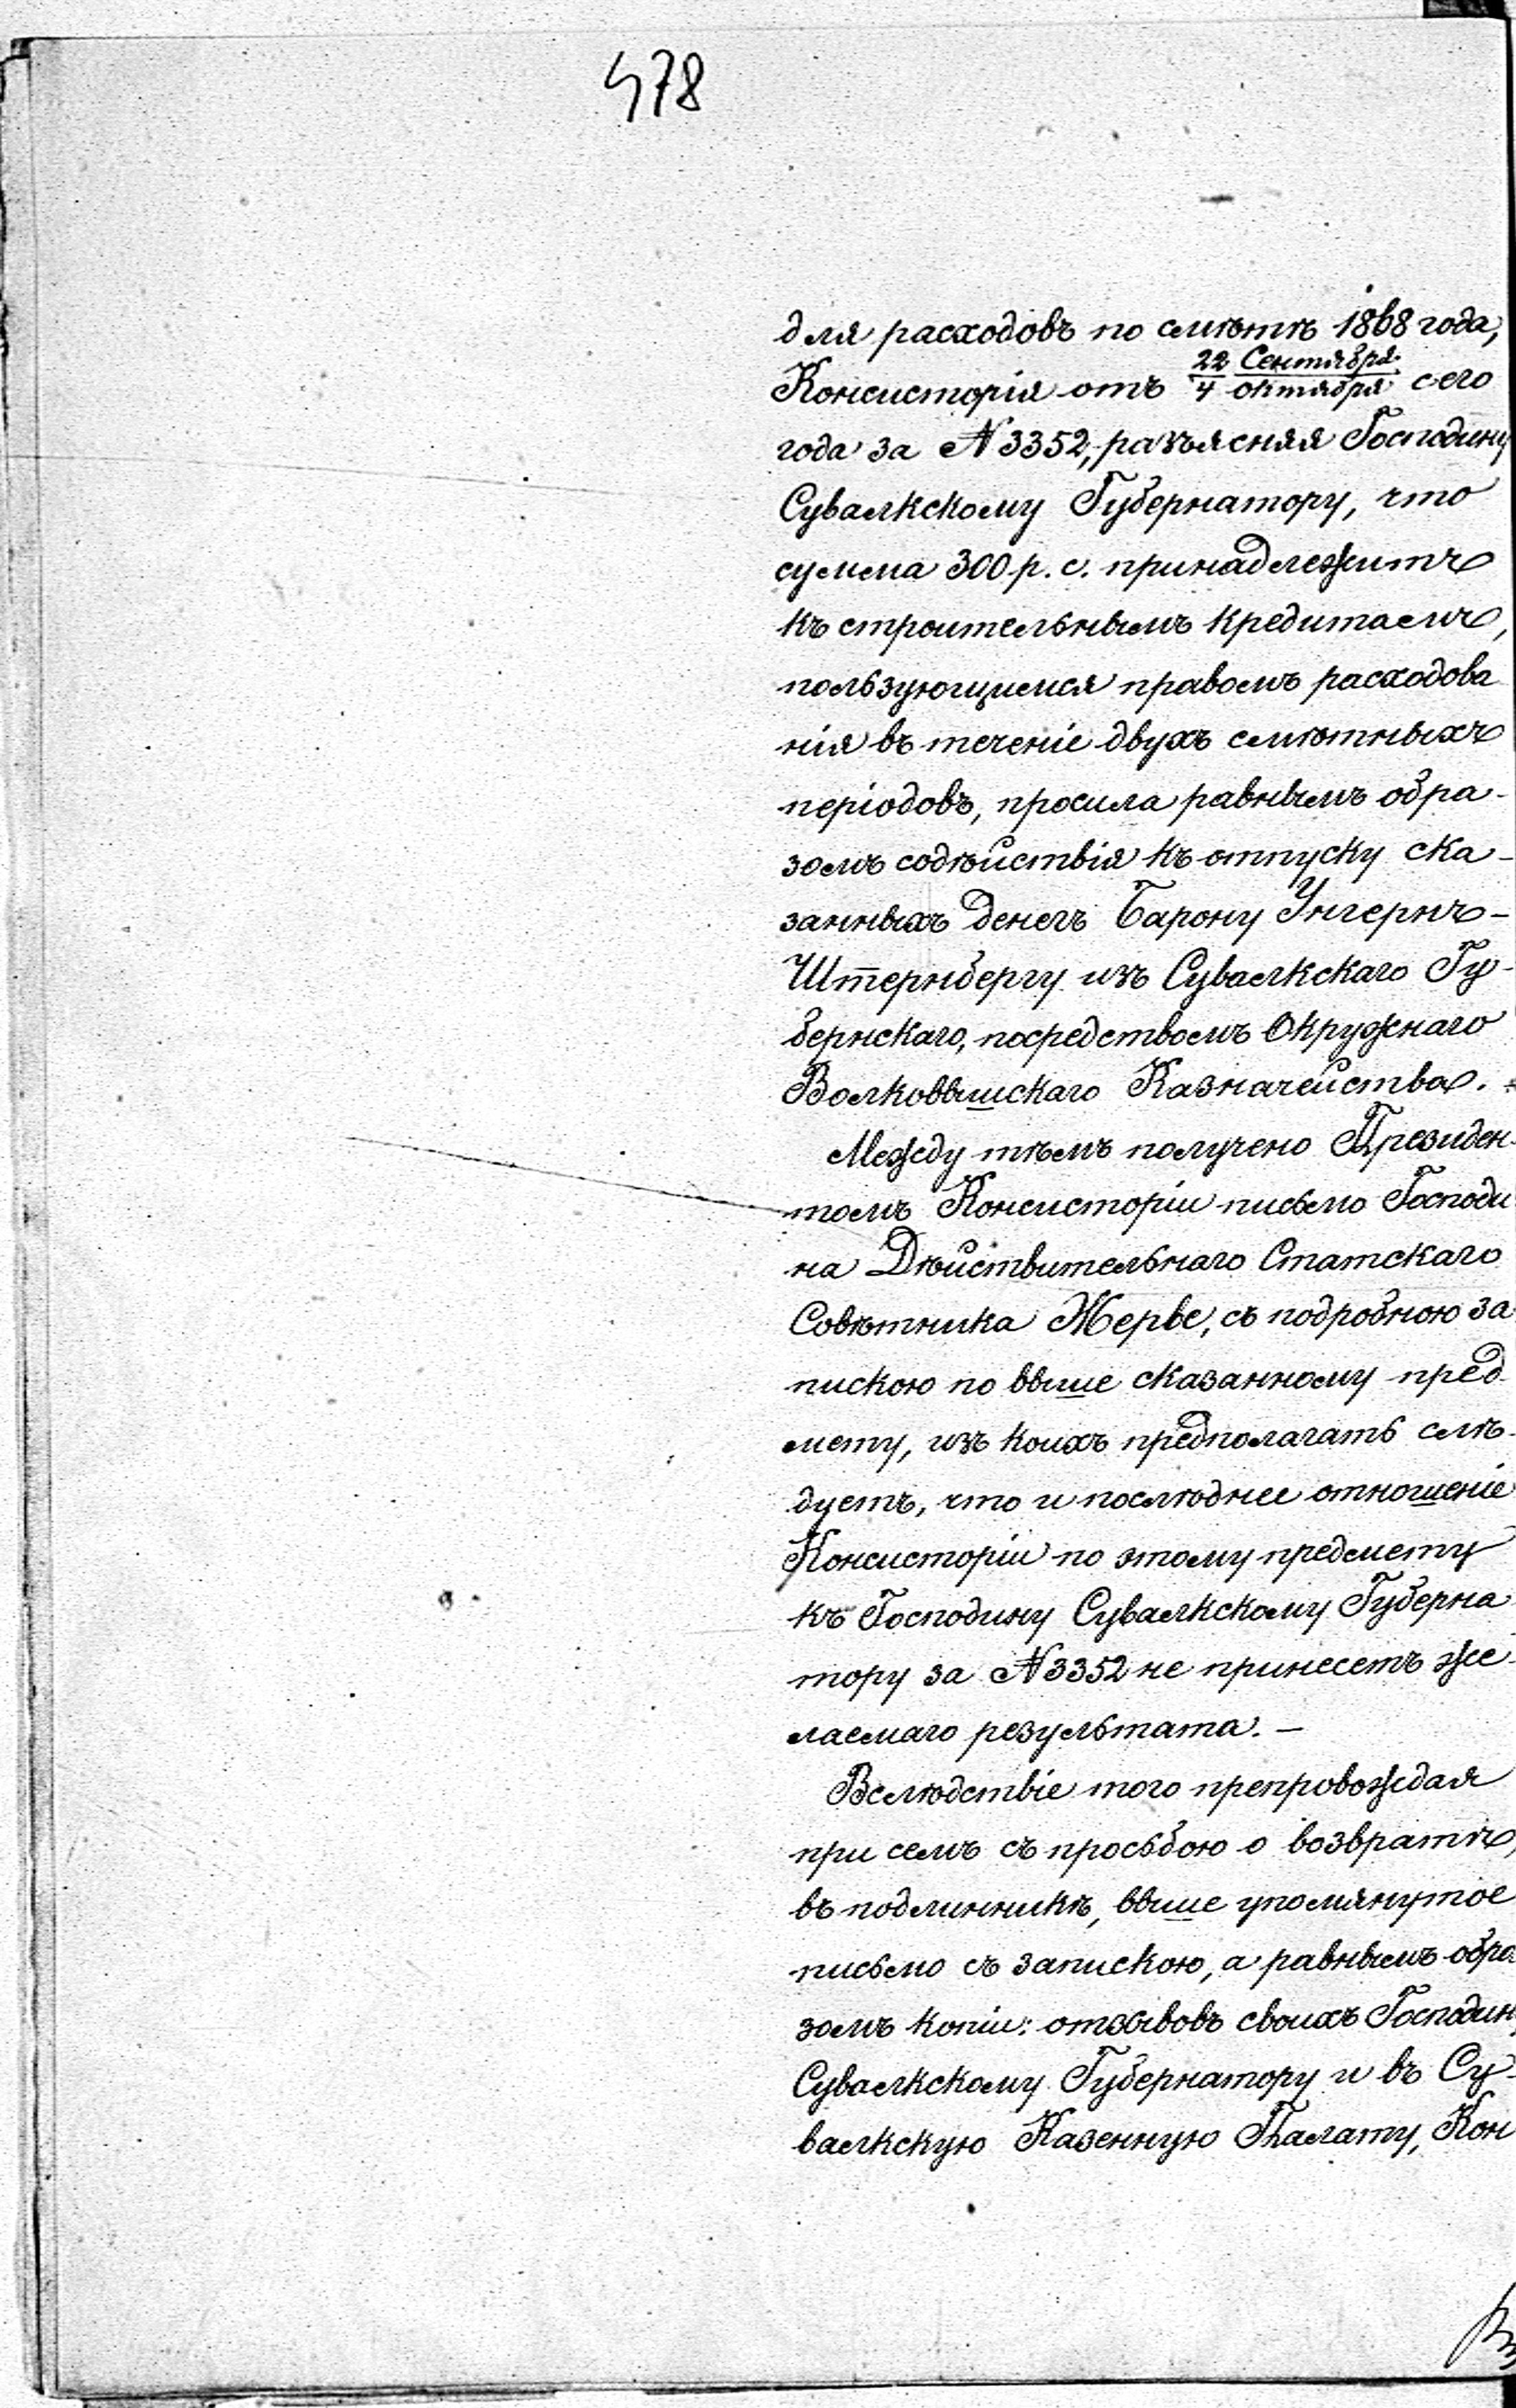 478
для расходовъ по смѣтѣ 1868 года,
Консисторія отъ 22 Сентября / 4 Октября сего
года за N 3352, разъясняя Господину
Сувалкскому Губернатору, что
сумма 300 р. с. принадлежитъ
къ строительнымъ кредитамъ,
пользующимся правомъ расходова
нія въ теченіе двухъ смѣтныхъ
періодовъ, просила равнымъ обра-
зомъ содѣйствія къ отпуску ска-
занныхъ денегъ Барону Унгернъ-
Штернбергу изъ Сувалкскаго Гу-
бернскаго, посредствомъ Окружнаго
Волковышскаго Казначейства.
Между тѣмъ получено Президен-
томъ Консисторіи письмо Господи
на Дѣйствительнаго Статскаго
Совѣтника Жерве, съ подробною за
пискою по выше сказанному пред-
мету, изъ коихъ предполагать слѣ-
дуетъ, что и послѣднее отношеніе
Консисторіи по этому предмету
къ Господину Сувалкскому Губерна
тору за N 3352 не принесетъ же-
лаемаго результата. —
Вслѣдствіе того препровождая
при семъ съ просьбою о возвратѣ,
въ подлинникѣ, выше упомянутое
письмо съ запискою, а равнымъ обра
зомъ копіи: отзывовъ своихъ Господину
Сувалкскому Губернатору и въ Су-
валкскую Казенную Палату, Кон